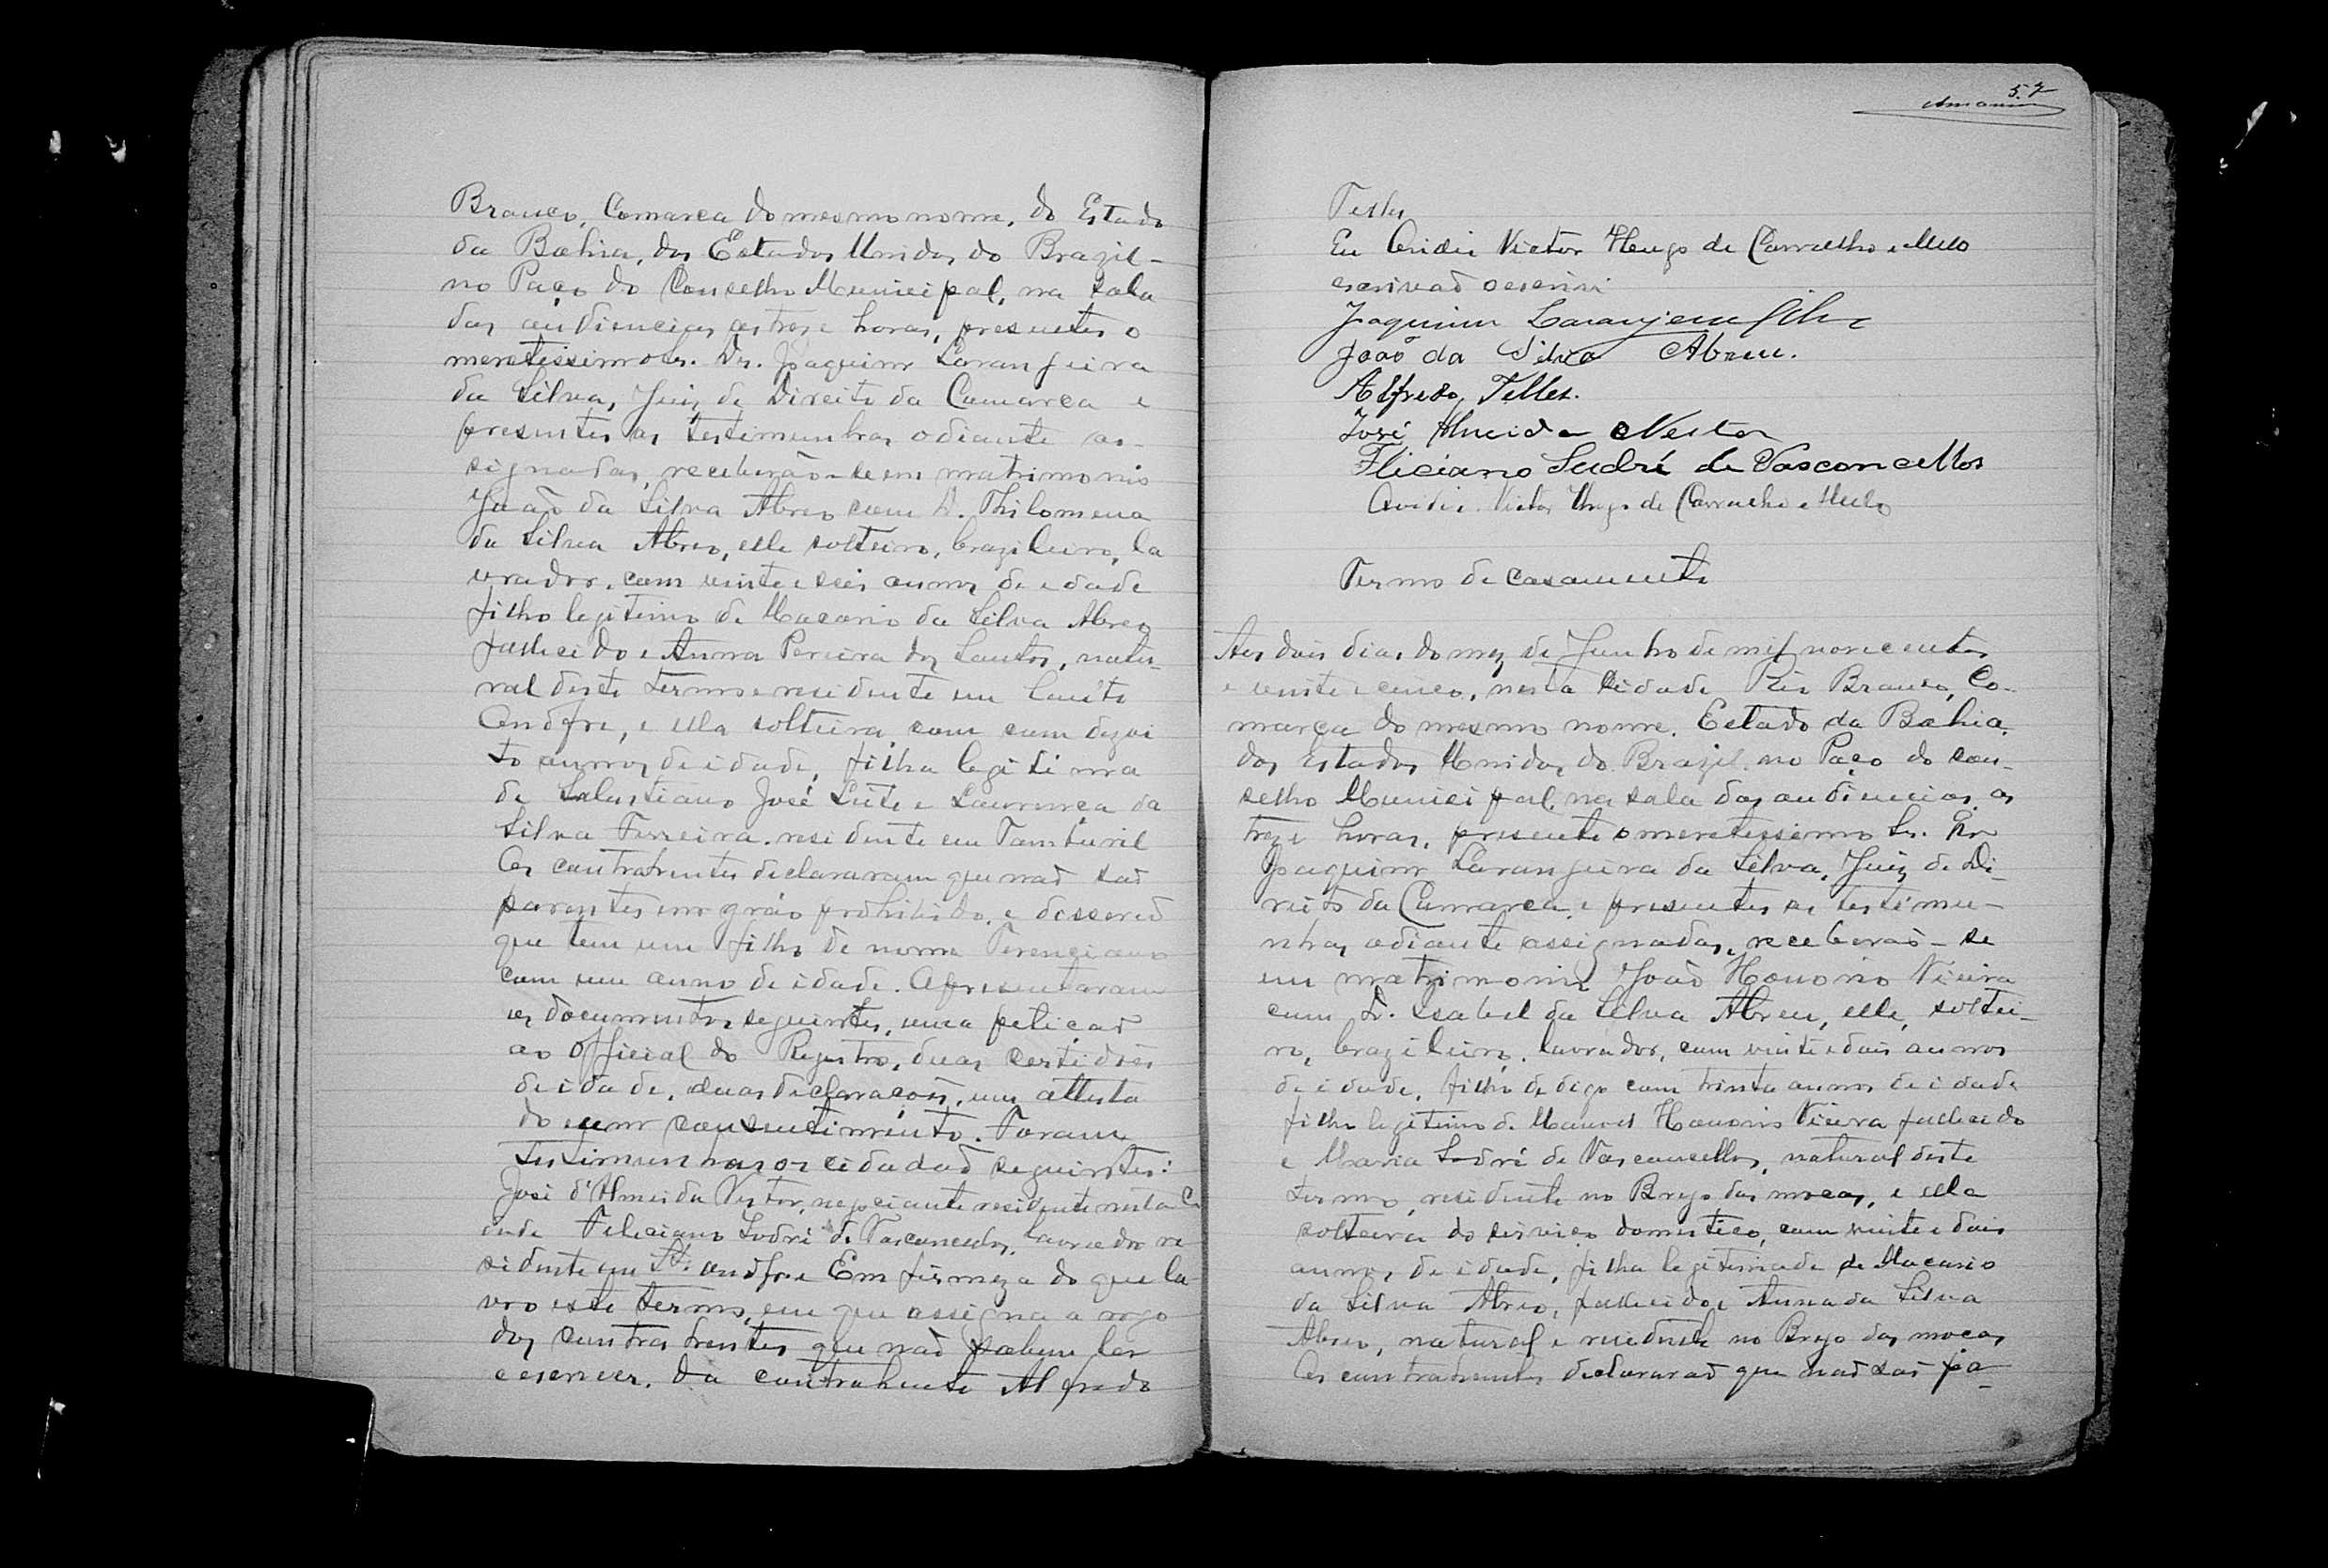 Branco, Comarca do mesmo nome, do Estado
da Bahia, dos Estados Unidos do Brazil -
no Paço do Conselho Municipal, na sala
das audiencias as treze horas, presentes o
meretissimo Sr. Dr. Joaquim Laranjeira
da Silva, Juiz de Direito da Comarca e
presentes as testimunhas adiante as-
signadas, receberão-se em matrimonio
João da Silva Abreo com D. Philomena
da Silva Abreo, elle solteiro, brazileiro, la
vrador, com vinte e seis annos de edade
filho legitimo de Macario da Silva Abreo
fallecido e Anna Pereira dos Santos, natu-
ral deste termo e residente em
e ella solteira, com com dezoi
to annos de idade, filha legitima
de Salustiano José Leite e Lourença da
Silva Ferreira, residente em Tamburil
Os contrahentes declararam que naõ saõ
parentes em gráo prohibido, e
que tem um filho de nome Terenciano
com um anno de idade. Apresentaram
os documentos seguintes, uma petiçaõ
ao Official do Registro, duas certidões
de idade, duas declaraçoes, um attesta
do e um consentimento. Foram
testimunhas os cidadaõ seguintes:
José d'Almeida Nestor, negociante residente nesta Ci
dade Feliciano Sodré de Vasconcellos, lavrador re
sidente em Em firmeza do que la
vro este termo, em que assigna a rogo
dos contrahentes que naõ sabem ler
e escrever, da contrahente Alfredo
57
Telles
Eu Ovidio Victor Hugo de Carvalho e Mello
escrivaõ o escrivi
Joaquim Laranjeira Silva
João da Silva Abreu.
Alfredo Telles.
José Almeida Nestor
Fliciano Sudré de Vasconcellos
Ovidio Victor Hugo de Carvalho e Mello
Termo de casamento
Aos dois dias do mez de Junho de mil novecentos
e vinte e cinco, nesta Cidade Rio Branco, Co-
marca do mesmo nome, Estado da Bahia,
dos Estados Unidos do Brazil, no Paço do con-
selho Municipal, na sala das audiencias as
treze horas, presente o meretissimo Sr. Dr
Joaquim Laranjeira da Silva, Juiz de Di-
reito da Comarca e presentes as testimu-
nhas adiante assignadas, receberaõ-se
em matrimonio João Honorio Vieira
com D. Isabel da Silva Abreu, elle, soltei-
ro, brazileiro, lavrador, com vinte e dois annos
de idade, filho de digo com trinta annos de idade
filho legitimo de Manoel Honorio Vieira fallecido
e Maria Sodré de Vasconcellos, natural deste
termo, residente no Brejo das mocas, e ella
solteira do serviço domestico, com vinte e dois
annos de idade, filha legitima de de Macario
da Silva Abreo, fallecido e Anna da Silva
Abreo, natural e residente no Brejo das mocas
Os contrahentes declararaõ que naõ saõ pa-